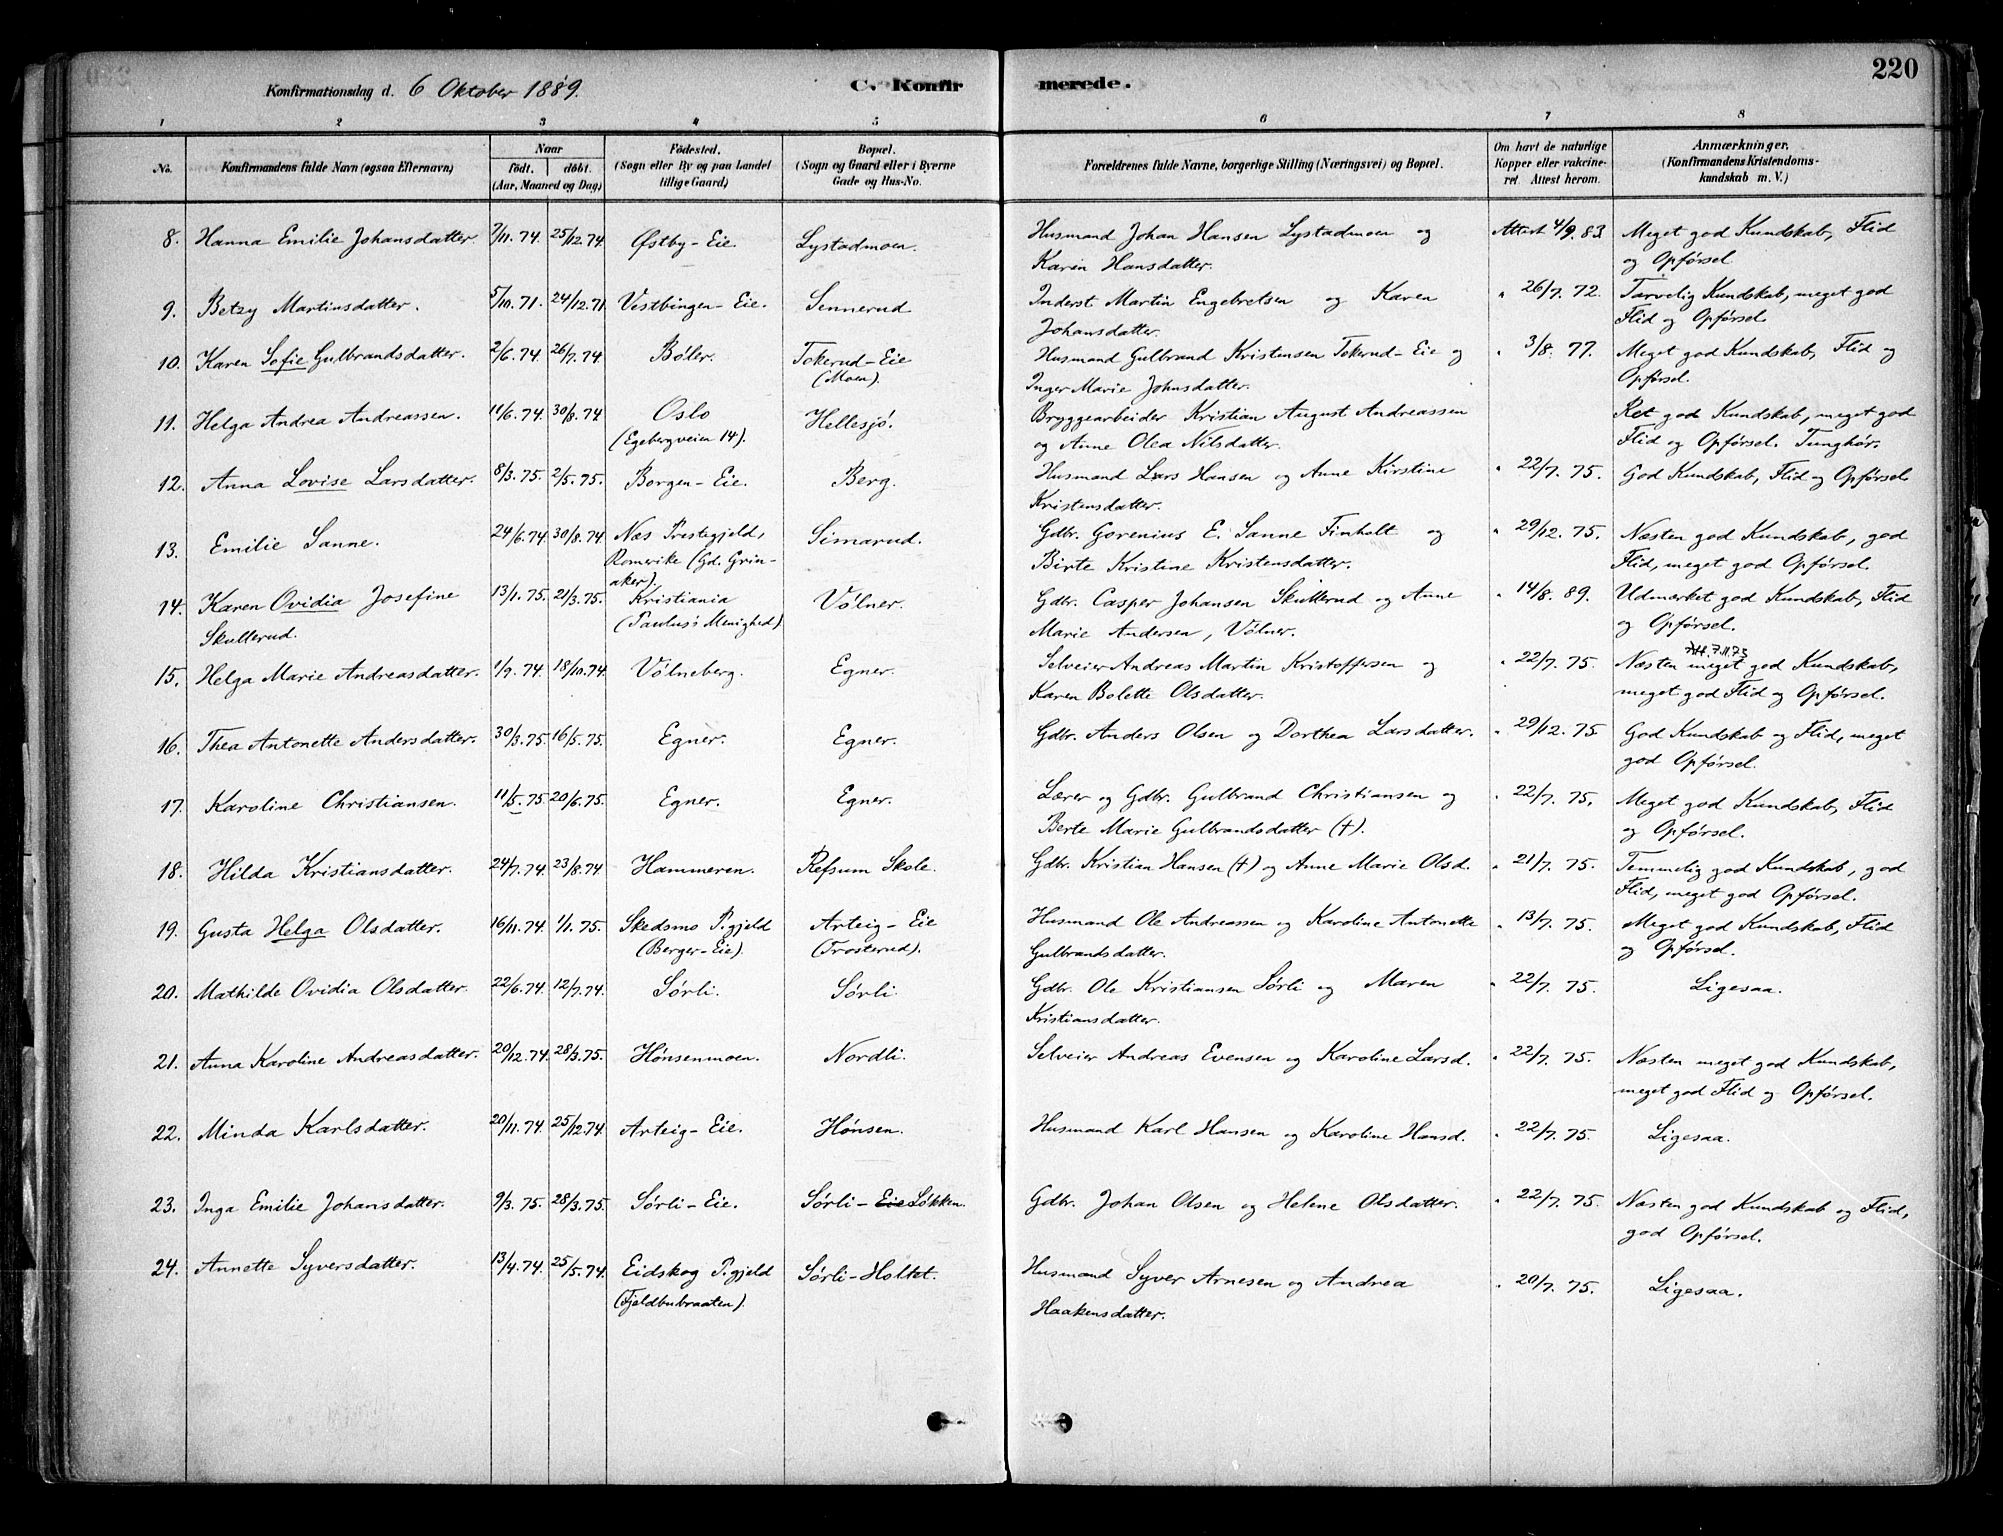 220
Konfirmationsdag d. 6 Oktober 1889. C. Konfirmerede.
1 2 3 4 5 6 7 8
No. Konfirmandens fulde Navn (ogsaa Efternavn) Naar födt. döbt. (Aar, Maaned og Dag) Födested. (Sogn eller By og paa Landet tillige Gaard) Bopæl. (Sogn og Gaard eller i Byerne Gade og Hus-No. Forældrenes fulde Navne, borgerlige Stilling (Næringsvei) og Bopæl. Om havt de naturlige Kopper eller vakcineret. Attest herom. Anmærkninger. (Konfirmandens Kristendomskundskab m. V.)
8. Hanna Emilie Johansdatter. 7/11. 74. 25/12. 74. Østby-Eie. Lystadmoen. Husmand Johan Hansen Lystadmoen og Attest 4/9. 83. Meget god Kundskab, Flid
Karen Hansdatter. og Opførsel.
9. Betzy Martinsdatter. 5/10. 71. 24/12. 71. Vestbingen-Eie. Sennerud Inderst Martin Engebretsen og Karen " 26/7. 72. Tarvelig Kundskab, meget god
Johansdatter. Flid og Opførsel.
10. Karen Sofie Gulbrandsdatter. 2/6. 74. 26/7. 74. Bøler. Tokerud-Eie Husmand Gulbrand Kristensen Tokerud-Eie og " 3/8. 77. Meget god Kundskab, Flid og
(Moen). Inger Marie Johnsdatter. Opførsel.
11. Helga Andrea Andreassen. 11/6. 74. 30/8. 74 Oslo Hellesjø. Bryggearbeider Kristian August Andreassen Ret god Kundskab, meget god
(Egebergveien 14). og Anne Olea Nilsdatter. Flid og Opførsel. Tunghør.
12. Anna Lovise Larsdatter. 8/3. 75. 2/5. 75. Borgen-Eie. Berg. Husmand Lars Hansen og Anne Kirstine " 22/7. 75. God Kundskab, Flid og Opførsel.
Kristensdatter.
13. Emilie Sanne. 24/6. 74. 30/8. 74. Næs Prestegjeld, Simarud. Gdbr. Gorenius E. Sanne Finholt og " 29/12. 75. Næsten god Kundskab, god
Romerike (Gd. Grin- Birte Kristine Kristensdatter. Flid, meget god Opførsel.
aker).
14. Karen Ovidia Josefine 13/1. 75. 21/3. 75. Kristiania Vølner. Gdbr. Casper Johansen Skullerud og Anne " 14/8. 89. Udmærket god Kundskab, Flid
Skullerud. (Paulus's Menighed) Marie Andersen, Vølner. og Opførsel.
15. Helga Marie Andreasdatter. 1/9. 74. 18/10. 74. Vølneberg. Egner. Selveier Andreas Martin Kristoffersen og " 22/7. 75. Næsten meget god Kundskab,
Karen Bolette Olsdatter. meget god Flid og Opførsel.
16. Thea Antonette Andersdatter. 30/3. 75. 16/5. 75. Egner. Egner. Gdbr. Anders Olsen og Dorthea Larsdatter. " 29/12. 75. God Kundskab og Flid, meget
god Opførsel.
17. Karoline Christiansen. 11/5. 75. 20/6. 75. Egner. Egner. Lærer og Gdbr. Gulbrand Christiansen og " 22/7. 75. Meget god Kundskab, Flid
Berte Marie Gulbrandsdatter (†). og Opførsel.
18. Hilda Kristiansdatter. 24/7. 74. 23/8. 74. Hammeren. Refsum Skole. Gdbr. Kristian Hansen (†) og Anne Marie Olsd. " 21/7. 75. Temmelig god Kundskab, god
Flid, meget god Opførsel.
19. Gusta Helga Olsdatter. 16/11. 74. 1/1. 75. Skedsmo P.gjeld Arteig-Eie Husmand Ole Andreassen og Karoline Antonette " 13/7. 75. Meget god Kundskab, Flid
(Berger-Eie). (Trosterud). Gulbrandsdatter. og Opførsel.
20. Mathilde Ovidia Olsdatter. 22/6. 74. 12/7. 74. Sørli. Sørli Gdbr. Ole Kristiansen Sørli og Maren " 22/7. 75. Ligesaa.
Kristiansdatter.
21. Anna Karoline Andreasdatter. 20/12. 74. 28/3. 75. Hønsenmoen. Nordli. Selveier Andreas Evensen og Karoline Larsd. " 22/7. 75. Næsten meget god Kundskab,
meget god Flid og Opførsel.
22. Minda Karlsdatter. 20/11. 74. 25/12. 74. Arteig-Eie. Hønsen. Husmand Karl Hansen og Karoline Hansd. " 22/7. 75. Ligesaa.
23. Inga Emilie Johansdatter. 9/3. 75. 28/3. 75. Sørli-Eie. Sørli-Eie Løkken. Gdbr. Johan Olsen og Helene Olsdatter. " 22/7. 75. Næsten god Kundskab og Flid,
god Opførsel.
24. Annette Syversdatter. 13/4. 74. 25/5. 74. Eidskog P.gjeld Sørli-Holtet. Husmand Syver Arnesen og Andrea " 20/7. 75. Ligesaa.
(Fjeldbubraaten). Haakensdatter.